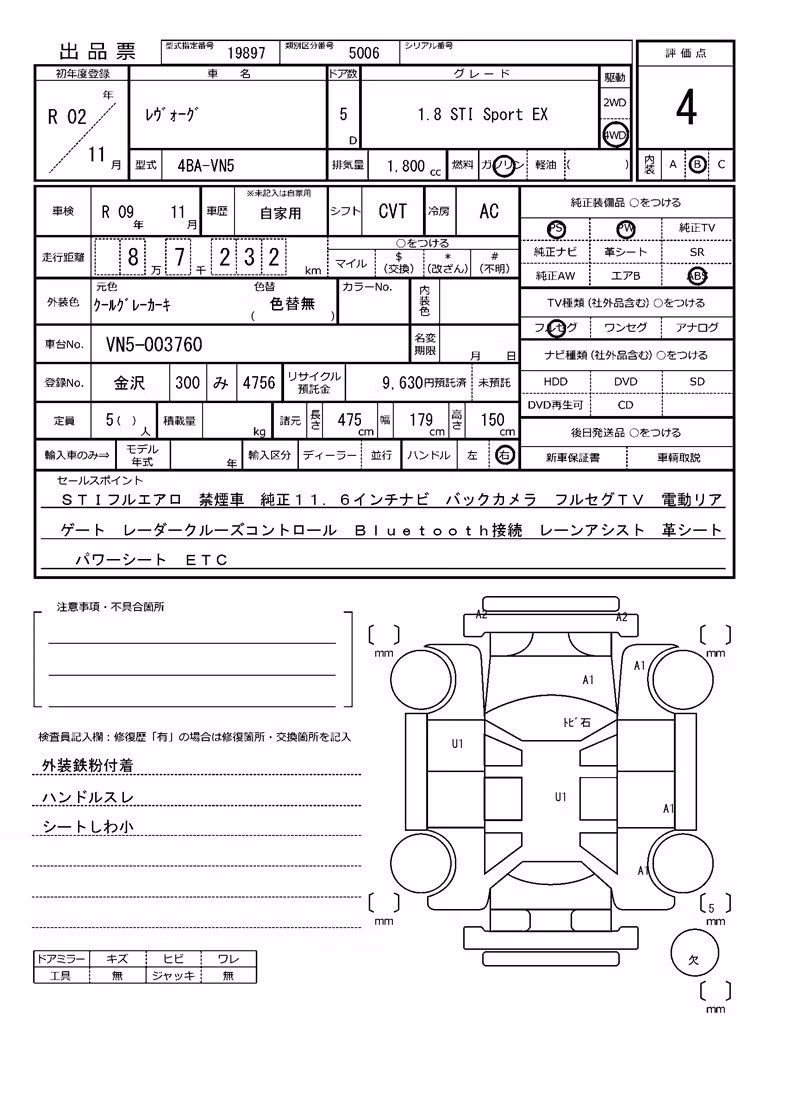 出品票 型式指定番号 19897 類別区分番号 5006 シリアル番号
評価点
4
内装 A B C
初年度登録 車名 ドア数 グレード 駆動
R 02 年 11 月 ﾚｳﾞｫｰｸﾞ 5 D 1.8 STI Sport EX 2WD 4WD
型式 4BA-VN5 排気量 1,800 cc 燃料 ガソリン 軽油 ( )
車検 R 09 年 11 月 車歴 ※未記入は自家用 自家用 シフト CVT 冷房 AC
走行距離 8 万 7 千 2 3 2 km ○をつける マイル $ (交換) * (改ざん) # (不明)
外装色 元色 ｸｰﾙｸﾞﾚｰｶｰｷ 色替 ( 色替無 ) カラーNo. 内装色
車台No. VN5-003760 名変期限 月 日
登録No. 金沢 300 み 4756 リサイクル預託金 9,630円預託済 未預託
定員 5( ) 人 積載量 kg 諸元 長さ 475 cm 幅 179 cm 高さ 150 cm
輸入車のみ⇒ モデル年式 年 輸入区分 ディーラー 並行 ハンドル 左 右
純正装備品 ○をつける
PS PW 純正TV
純正ナビ 革シート SR
純正AW エアB ABS
TV種類(社外品含む) ○をつける
フルセグ ワンセグ アナログ
ナビ種類(社外品含む) ○をつける
HDD DVD SD
DVD再生可 CD
後日発送品 ○をつける
新車保証書 車輌取説
セールスポイント
ＳＴＩフルエアロ 禁煙車 純正１１．６インチナビ バックカメラ フルセグＴＶ 電動リア
ゲート レーダークルーズコントロール Ｂｌｕｅｔｏｏｔｈ接続 レーンアシスト 革シート
パワーシート ＥＴＣ
注意事項・不具合箇所
検査員記入欄：修復歴「有」の場合は修復箇所・交換箇所を記入
外装鉄粉付着
ハンドルスレ
シートしわ小
ドアミラー キズ ヒビ ワレ
工具 無 ジャッキ 無
A2 A2
mm mm
A1
A1
ﾄﾋﾞ石
U1
U1
A1
A1
mm 5 mm
欠
mm